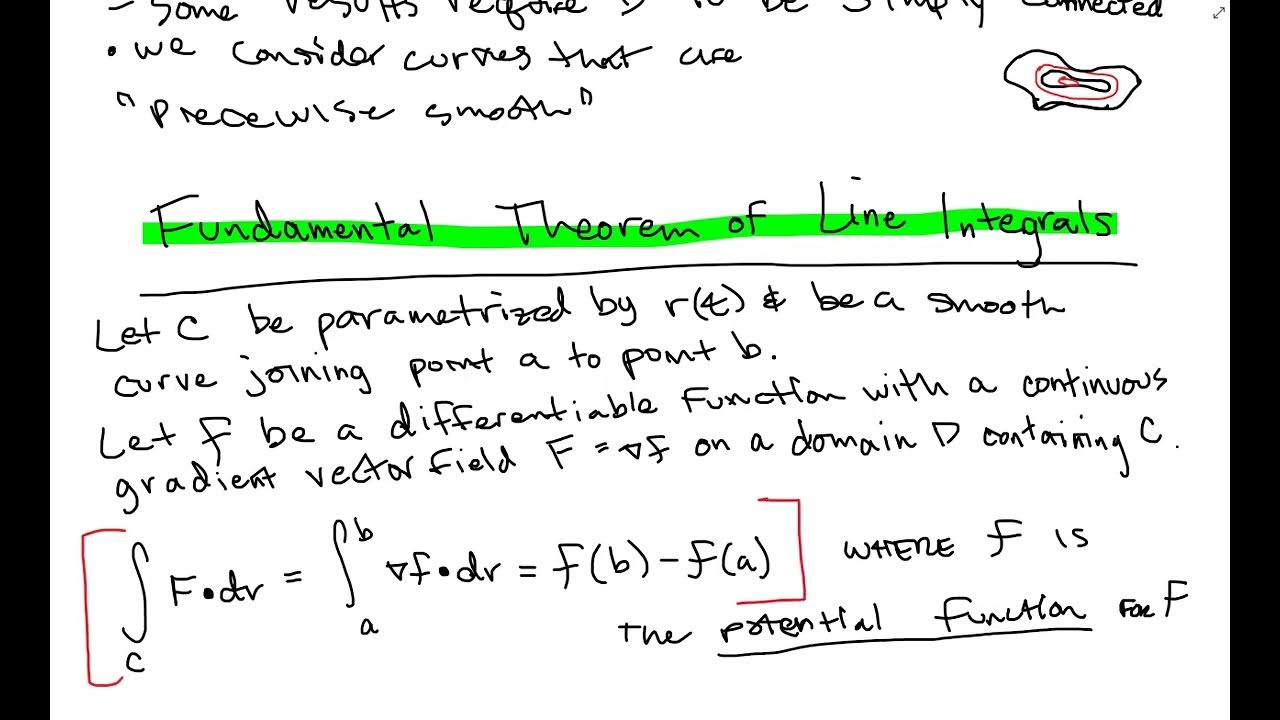 - Some results require D to be simply connected
• we consider curves that are
"Piecewise smooth"
Fundamental Theorem of Line Integrals
Let C be parametrized by r(t) & be a smooth
curve joining point a to point b.
Let f be a differentiable function with a continuous
gradient vector field F = ∇f on a domain D containing C.
∫_C F•dr = ∫_a^b ∇f•dr = f(b) - f(a) WHERE f is
the potential function for F